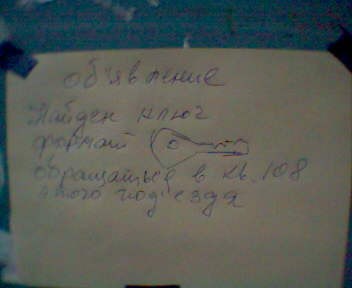 объявление
Найден ключ
формат
обращатье в кв. 108
4 ого под'езда